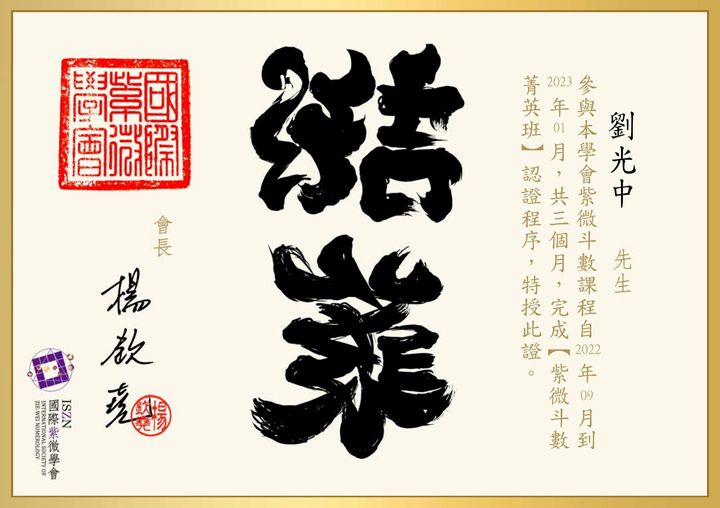 劉光中 先生
參與本學會紫微斗數課程自2022年09月到
2023年01月，共三個月，完成【紫微斗數
菁英班】認證程序，特授此證。
結業
國際
紫微
學會
會長
楊欽堯
楊
欽堯
ISZN
國際紫微學會
INTERNATIONAL SOCIETY OF
ZIE-WEI NUMEROLOGY